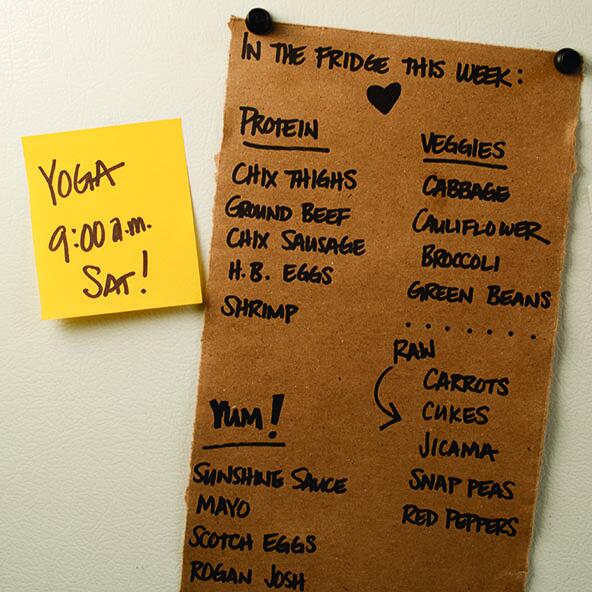 YOGA
9:00 a.m.
SAT!
IN THE FRIDGE THIS WEEK:
PROTEIN
CHIX THIGHS
GROUND BEEF
CHIX SAUSAGE
H.B. EGGS
SHRIMP
YUM!
SUNSHINE SAUCE
MAYO
SCOTCH EGGS
ROGAN JOSH
VEGGIES
CABBAGE
CAULIFLOWER
BROCCOLI
GREEN BEANS
RAW
CARROTS
CUKES
JICAMA
SNAP PEAS
RED PEPPERS